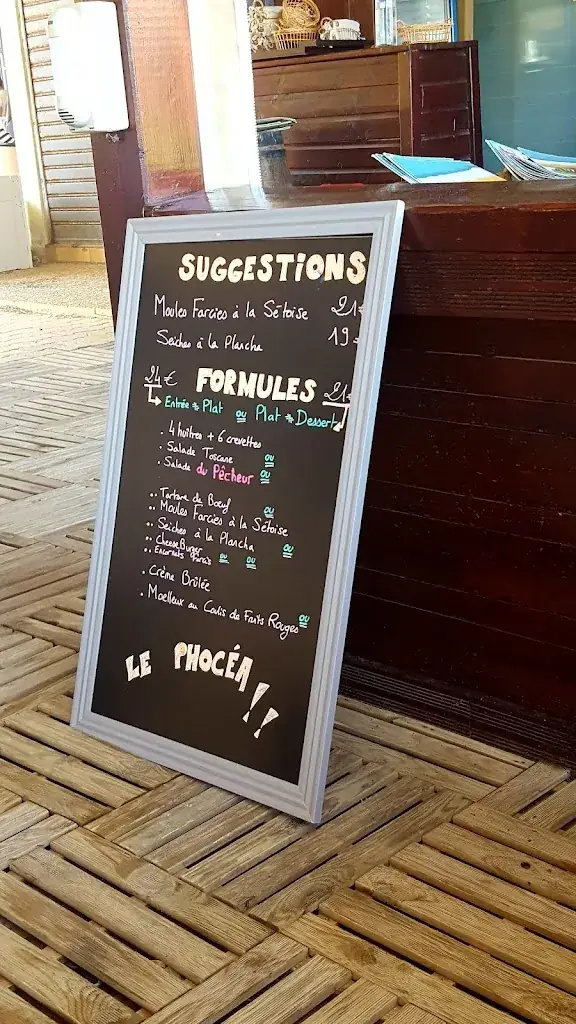 SUGGESTIONS
Moules Farcies à la Sétoise 21€
Seiches à la Plancha 19€
24€ FORMULES 21€
Entrée + Plat ou Plat + Dessert
. 4 huîtres + 6 crevettes
. Salade Toscane ou
. Salade du Pêcheur ou
.. Tartare de Boeuf ou
.. Moules Farcies à la Sétoise
.. Seiches à la Plancha ou
.. CheeseBurger
.. Encornets Farcis ou ou
. Crème Brûlée
. Moelleux au Coulis de Fruits Rouges ou
LE PHOCÉA !!